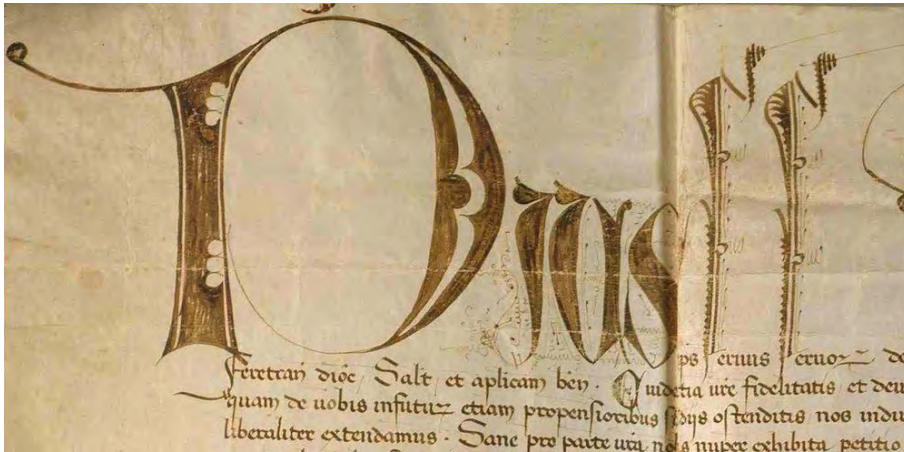 Pius eps servus servoz de
Feretran dioc Salt et aplicam ben. Quidetia vre fidelitatis et deu
quam de uobis infuturz etiam propensioribus ostenditis nos indu
liberaliter extendamus. Sane pro parte vra nobis nuper exhibita petitio